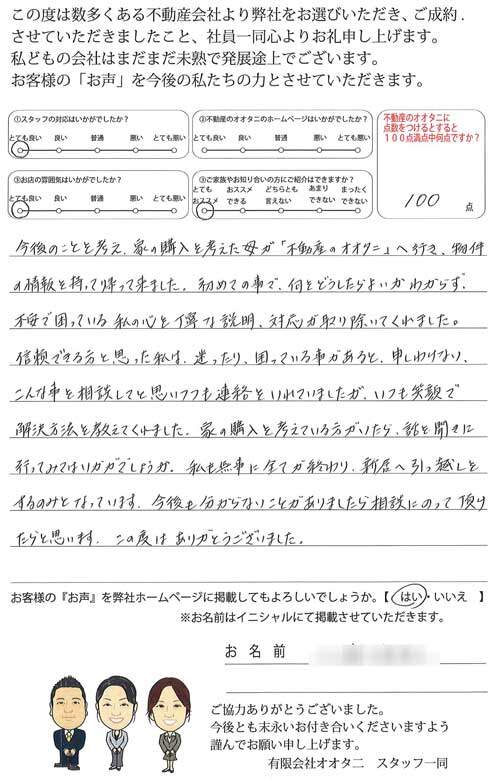 この度は数多くある不動産会社より弊社をお選びいただき、ご成約.
させていただきましたこと、社員一同心よりお礼申し上げます。
私どもの会社はまだまだ未熟で発展途上でございます。
お客様の「お声」を今後の私たちの力とさせていただきます。
①スタッフの対応はいかがでしたか？
とても良い 良い 普通 悪い とても悪い
②不動産のオオタニのホームページはいかがでしたか？
とても良い 良い 普通 悪い とても悪い
③お店の雰囲気はいかがでしたか？
とても良い 良い 普通 悪い とても悪い
⑤ご家族やお知り合いの方にご紹介はできますか？
とても オススメ どちらとも あまり まったく
おススメ できる 言えない できない できない
不動産のオオタニに
点数をつけるとすると
１００点満点中何点ですか？
100 点
今後のことを考え、家の購入を考えた母が「不動産のオオタニ」へ行き、物件
の情報を持って帰って来ました。初めての事で、何をどうしたらよいかわからず、
不安で困っている私の心を丁寧な説明、対応が取り除いてくれました。
信頼できる方と思った私は、迷ったり、困っている事があると、申しわけない、
こんな事を相談してと思いつつも連絡をいれていましたが、いつも笑顔で
解決方法を教えてくれました。家の購入を考えている方がいたら、話を聞きに
行ってみてはいかがでしょうか。私も無事に全てが終わり、新居へ引っ越しを
するのみとなっています。今後も分からないことがありましたら相談にのって頂け
たらと思います。この度はありがとうございました。
お客様の『お声』を弊社ホームページに掲載してもよろしいでしょうか。【 はい・いいえ 】
※お名前はイニシャルにて掲載させていただきます。
お 名 前
ご協力ありがとうございました。
今後とも末永いお付き合いくださいますよう
謹んでお願い申し上げます。
有限会社オオタニ スタッフ一同